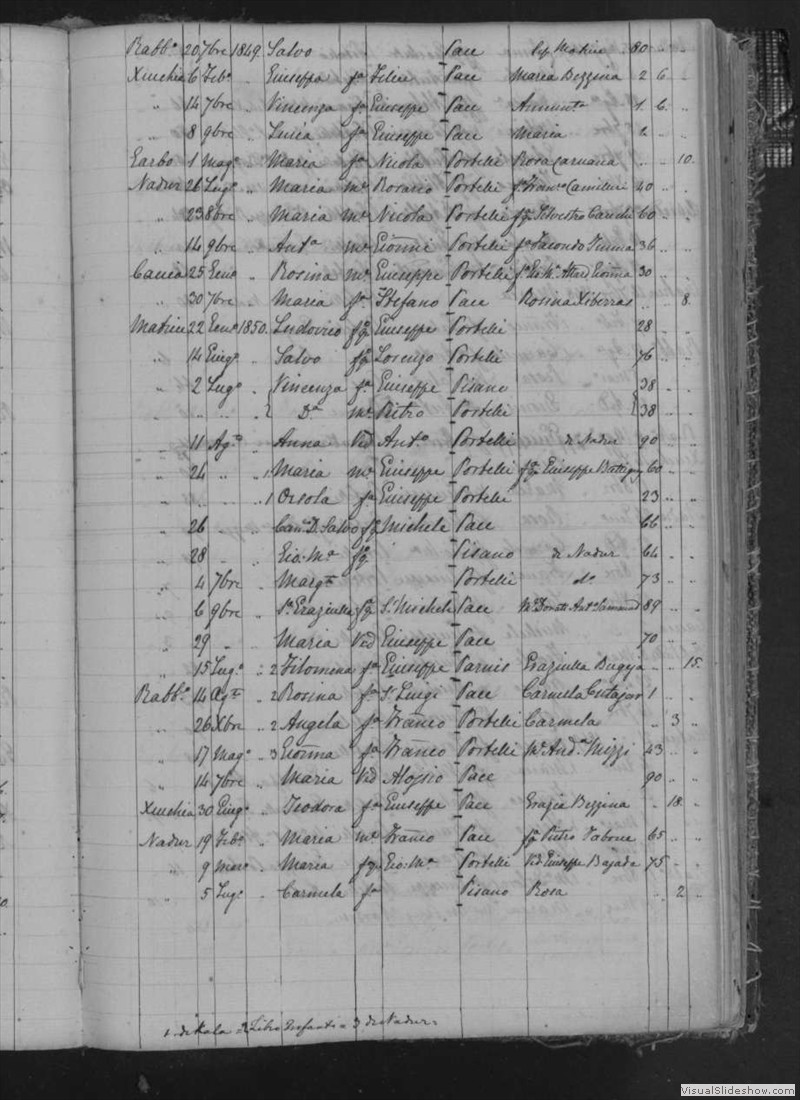 Rabb.o 20 7bre 1849. Salvo Pace 80 " "
Xeuchia 6 Feb.o " Giuseppa fa Felice Pace Maria Bezzina 2 6 "
" 14 7bre " Vincenza fa Giuseppe Pace Assunta 1 6 "
" 8 9bre " Lucia fa Giuseppe Pace Maria 2 " "
Garbo 1 Mag.o " Maria fa Nicola Portelli Rosa Caruana " " 10
Nadur 26 Lug.o " Maria me Rosario Portelli fa Fran.co Camilleri 40 " "
" 23 8bre " Maria me Nicola Portelli fq Silvestro 60 " "
" 14 9bre " Ant.a me Giovnni Portelli 36 " "
Caccia 25 Gen.o " Rosina me Giuseppe Portelli 30 " "
" 30 7bre " Maria fa Stefano Pace Rosina Xiberras " " 8
Matrice 22 Gen.o 1850. Ludovico fq Giuseppe Portelli 28 " "
" 14 Giug.o " Salvo fq Lorenzo Portelli 76 " "
" 2 Lug.o " Vincenza fa Giuseppe Pisano 38 " "
" " " " D.a me Pietro Portelli 38 " "
" 11 Ag.to " Anna Ved Ant.o Portelli di Nadur 90 " "
" 24 " " 1 Maria me Giuseppe Portelli fq Giuseppe 60 " "
" " " 1 Orsola fa Giuseppe Portelli 23 " "
" 26 " " Can.co D. Salvo fq Michele Pace 66 " "
" 28 " " Gio. M.a fq Pisano di Nadur 64 " "
" 4 7bre " Marg.ta Portelli do 73 " "
" 6 9bre " Sa Graziulla fq Sr Michele Pace 89 " "
" 29 " " Maria Ved Giuseppe Pace 70 " "
" 15 Lug.o " 2 Filomena fa Giuseppe Parnis Graziulla Bugeja " " 15
Rabb.o 14 Ag.to " 2 Rosina fa Sr Luigi Pace Carmela Cutajar 1 " "
" 26 Xbre " 2 Angela fa Franco Portelli Carmela " 3 "
" 17 Mag.o " 3 Giovnna fa Franco Portelli Me And.a Mizzi 43 " "
" 14 7bre " Maria Ved Alojsio Pace 90 " "
Xeuchia 30 Giug.o " Teodora fa Giuseppe Pace Grazia Bezzina " 18 "
Nadur 19 Feb.o " Maria me Franco Pace fq Pietro Tabone 65 " "
" 9 mar.o " Maria fq Gio. M.a Portelli Ved Giuseppe Bajada 75 " "
" 5 Lug.o " Carmela fa Pisano Rosa " 2 "
1 di Kala = 2 Libro Infanti = 3 di Nadur.
VisualSlideshow.com